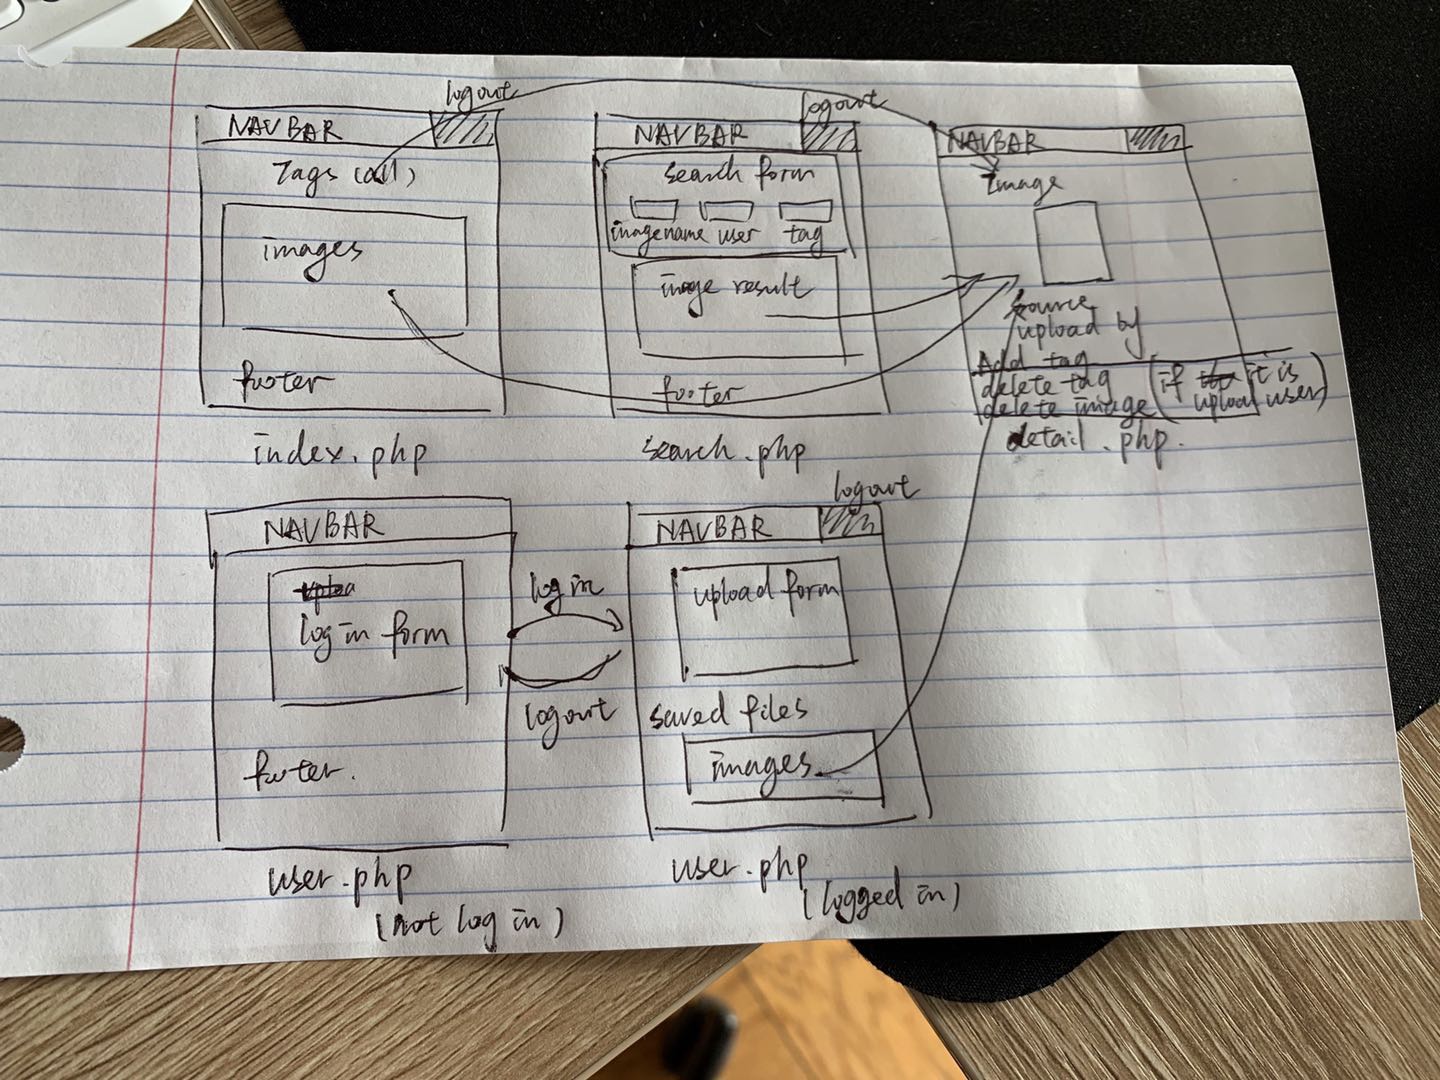 logout
NAVBAR
Tags (all)
images
footer
index.php
logout
NAVBAR
search form
imagename user tag
image result
footer
search.php
NAVBAR
Image
source
upload by
Add tag
delete tag (if it is
delete image upload user)
detail.php.
NAVBAR
log in form
footer.
user.php
(not log in)
log in
logout
logout
NAVBAR
upload form
saved files
images
user.php
(logged in)